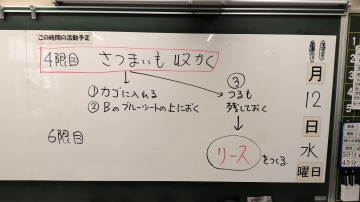 この時間の活動予定
4限目 さつまいも収かく
①カゴに入れる
②Bのブルーシートの上におく
③
つるも
残しておく
リースをつくる
6限目
月
12
日
水
曜日
50分
45分